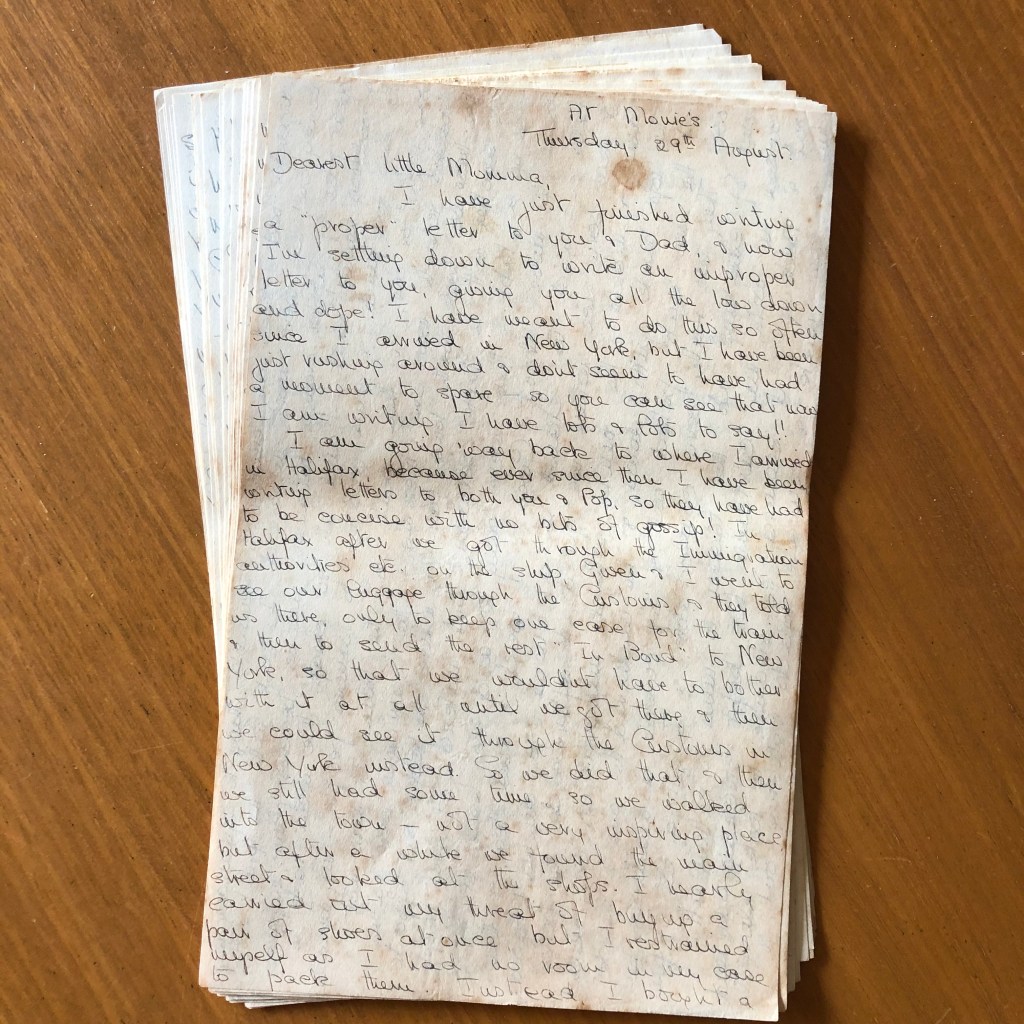 At Mouie's
Thursday 29th August.
Dearest little Momma,
I have just finished writing
a "proper" letter to you & Dad, & now
I'm settling down to write an improper
letter to you, giving you all the low down
and dope! I have meant to do this so often
since I arrived in New York, but I have been
just rushing around & dont seem to have had
a moment to spare - so you can see that now
I am writing I have lots & lots to say!!
I am going 'way back to where I arrived
in Halifax because ever since then I have been
writing letters to both you & Pop, so they have had
to be concise with no bits of gossip! In
Halifax after we got through the Immigration
authorities etc. on the ship, Gwen & I went to
see our luggage through the Customs, & they told
us there, only to keep one case for the train
& then to send the rest "In Bond" to New
York, so that we wouldnt have to bother
with it at all until we got there, & then
we could see it through the Customs in
New York instead. So we did that & then
we still had some time, so we walked
into the town - not a very inspiring place
but after a while we found the main
street & looked at the shops. I nearly
carried out my threat of buying a
pair of shoes at once, but I restrained
myself as I had no room in my case
to pack them. Instead I bought a